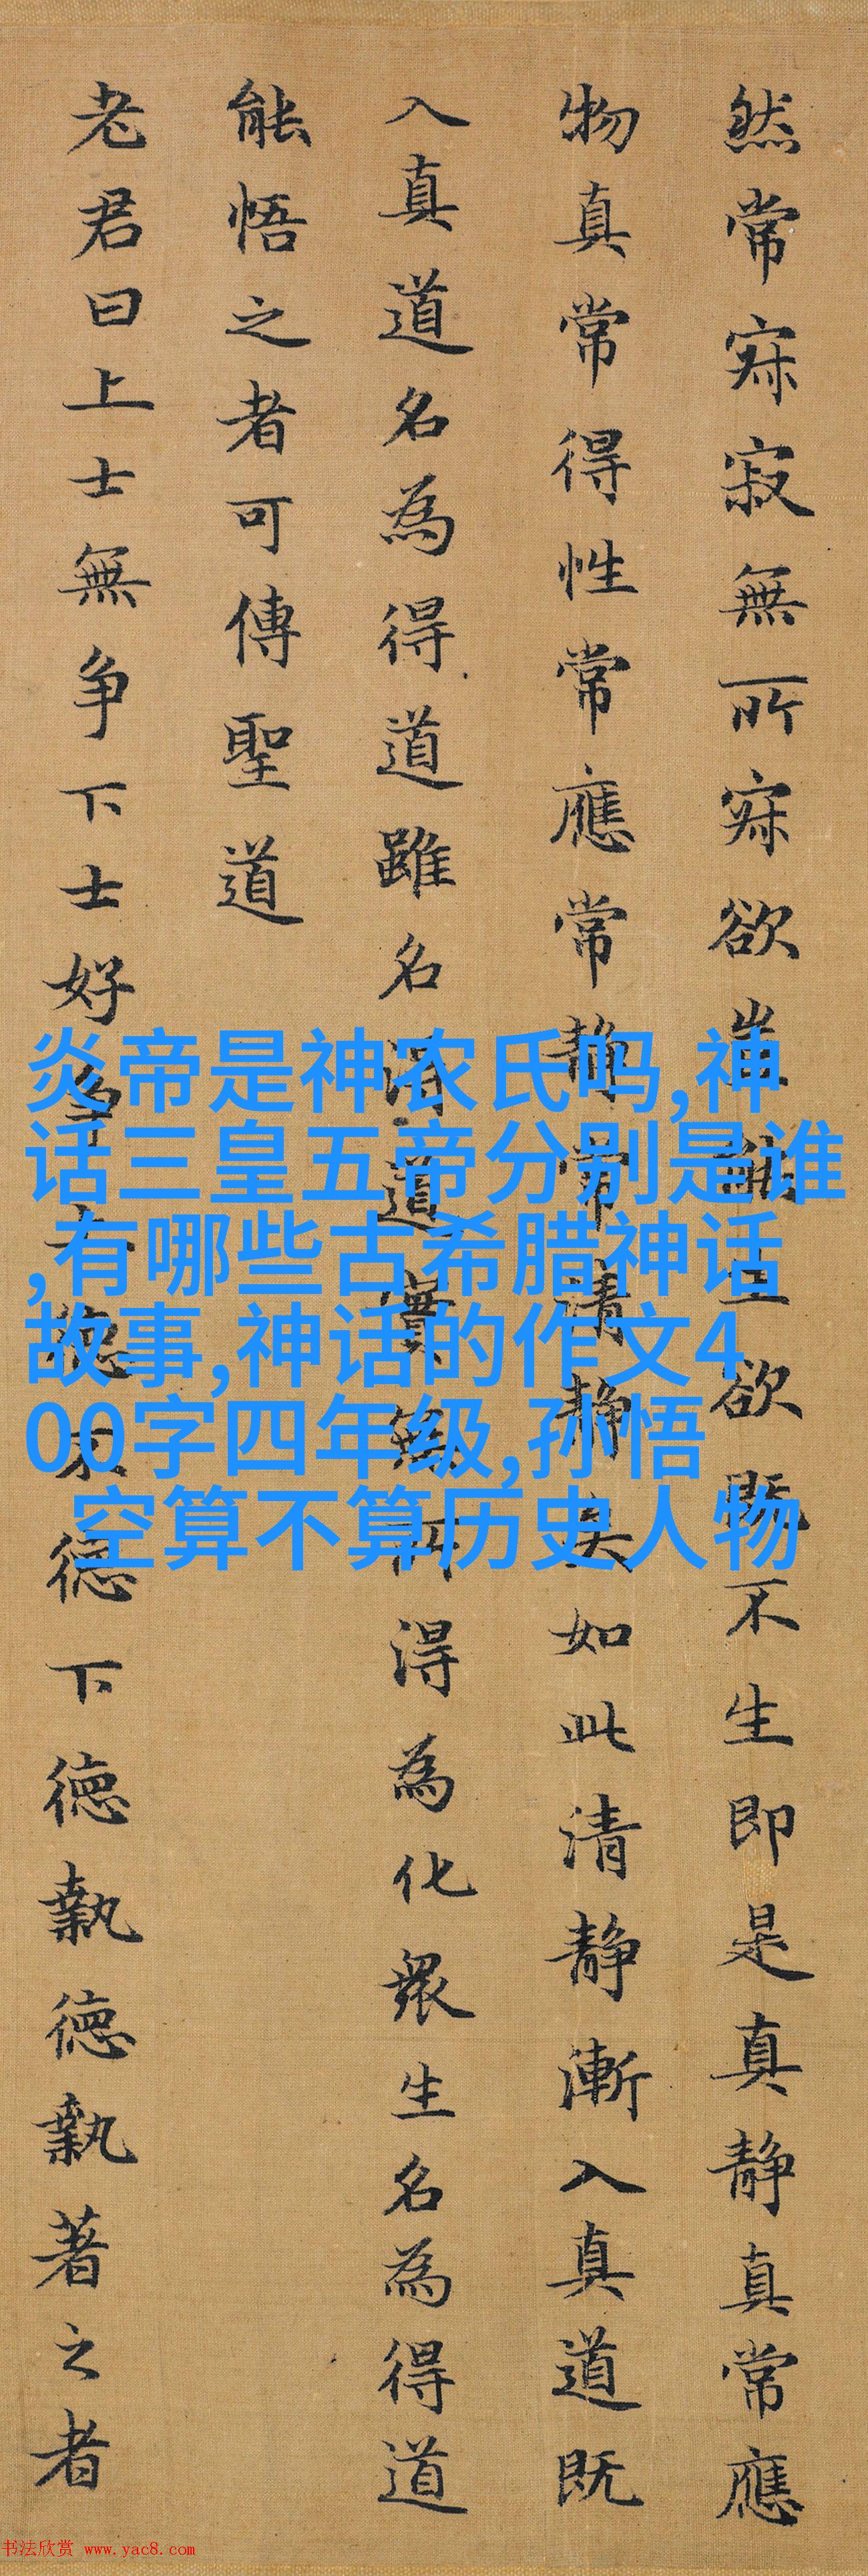 然常寂寂無所寂欲豈能生欲既不生即是真静真常應
物真常得性常應常静常清静矣如此清静漸入真道既
入真道名為得道雖名得道實無所得為化衆生名為得道
能悟之者可傳聖道
老君曰上士無争下士好争上德不德下德執德執著之者
炎帝是神农氏吗,神
话三皇五帝分别是谁
,有哪些古希腊神话
故事,神话的作文4
00字四年级,孙悟
空算不算历史人物
书法欣赏 www.yac8.com